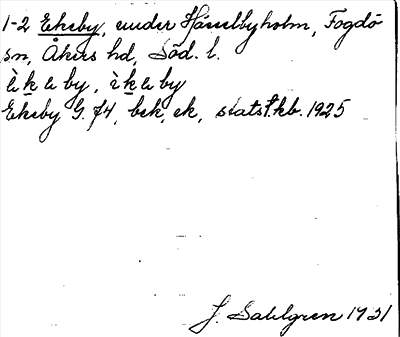 1-2 Ekeby, under Hässelbyholm, Fogdö
sn, Åkers hd, Söd. l.
Ekeby G. 74, bek, ek, statsf.kb. 1925
J. Sahlgren 1931